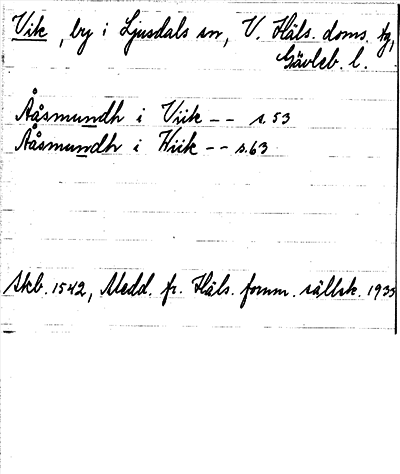 Vik, by i Ljusdals sn, V. Häls. doms. tg,
Gävleb. l.
Ååsmundh i Viik -- s. 53
Ååsmundh i Wiik -- s. 63
Skb. 1542, Medd. fr. Häls. fornm. sällsk. 1935